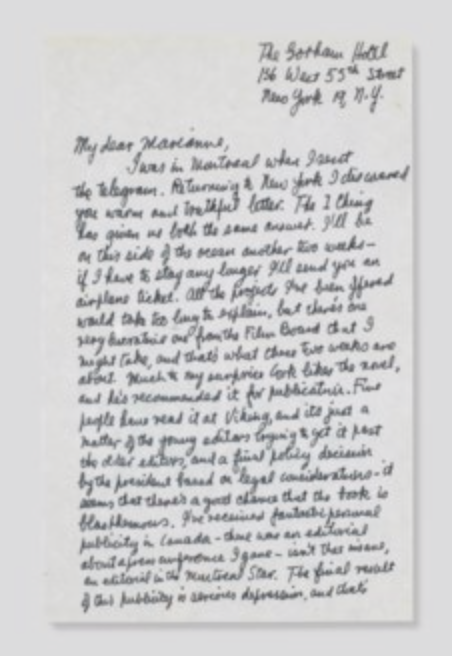 The Gorham Hotel
136 West 55th Street
New York 19, N.Y.
My dear Marianne,
I was in Montreal when I sent
the telegram. Returning to New York I discovered
your warm and truthful letter. The I Ching
has given us both the same answer. I'll be
on this side of the ocean another two weeks-
if I have to stay any longer I'll send you an
airplane ticket. All the projects I've been offered
would take too long to explain, but there's one
very lucrative one from the Film Board that I
might take, and that's what these two weeks are
about. Much to my surprise Cork likes the novel,
and he's recommended it for publication. Five
people have read it at Viking, and its just a
matter of the young editors trying to get it past
the older editors, and a final policy decision
by the president based on legal considerations-it
seems that there's a good chance that the book is
blasphemous. I've received fantastic personal
publicity in Canada-there was an editorial
about a press conference I gave-isn't that insane,
an editorial in the Montreal Star. The final result
of this publicity is serious depression, and that's